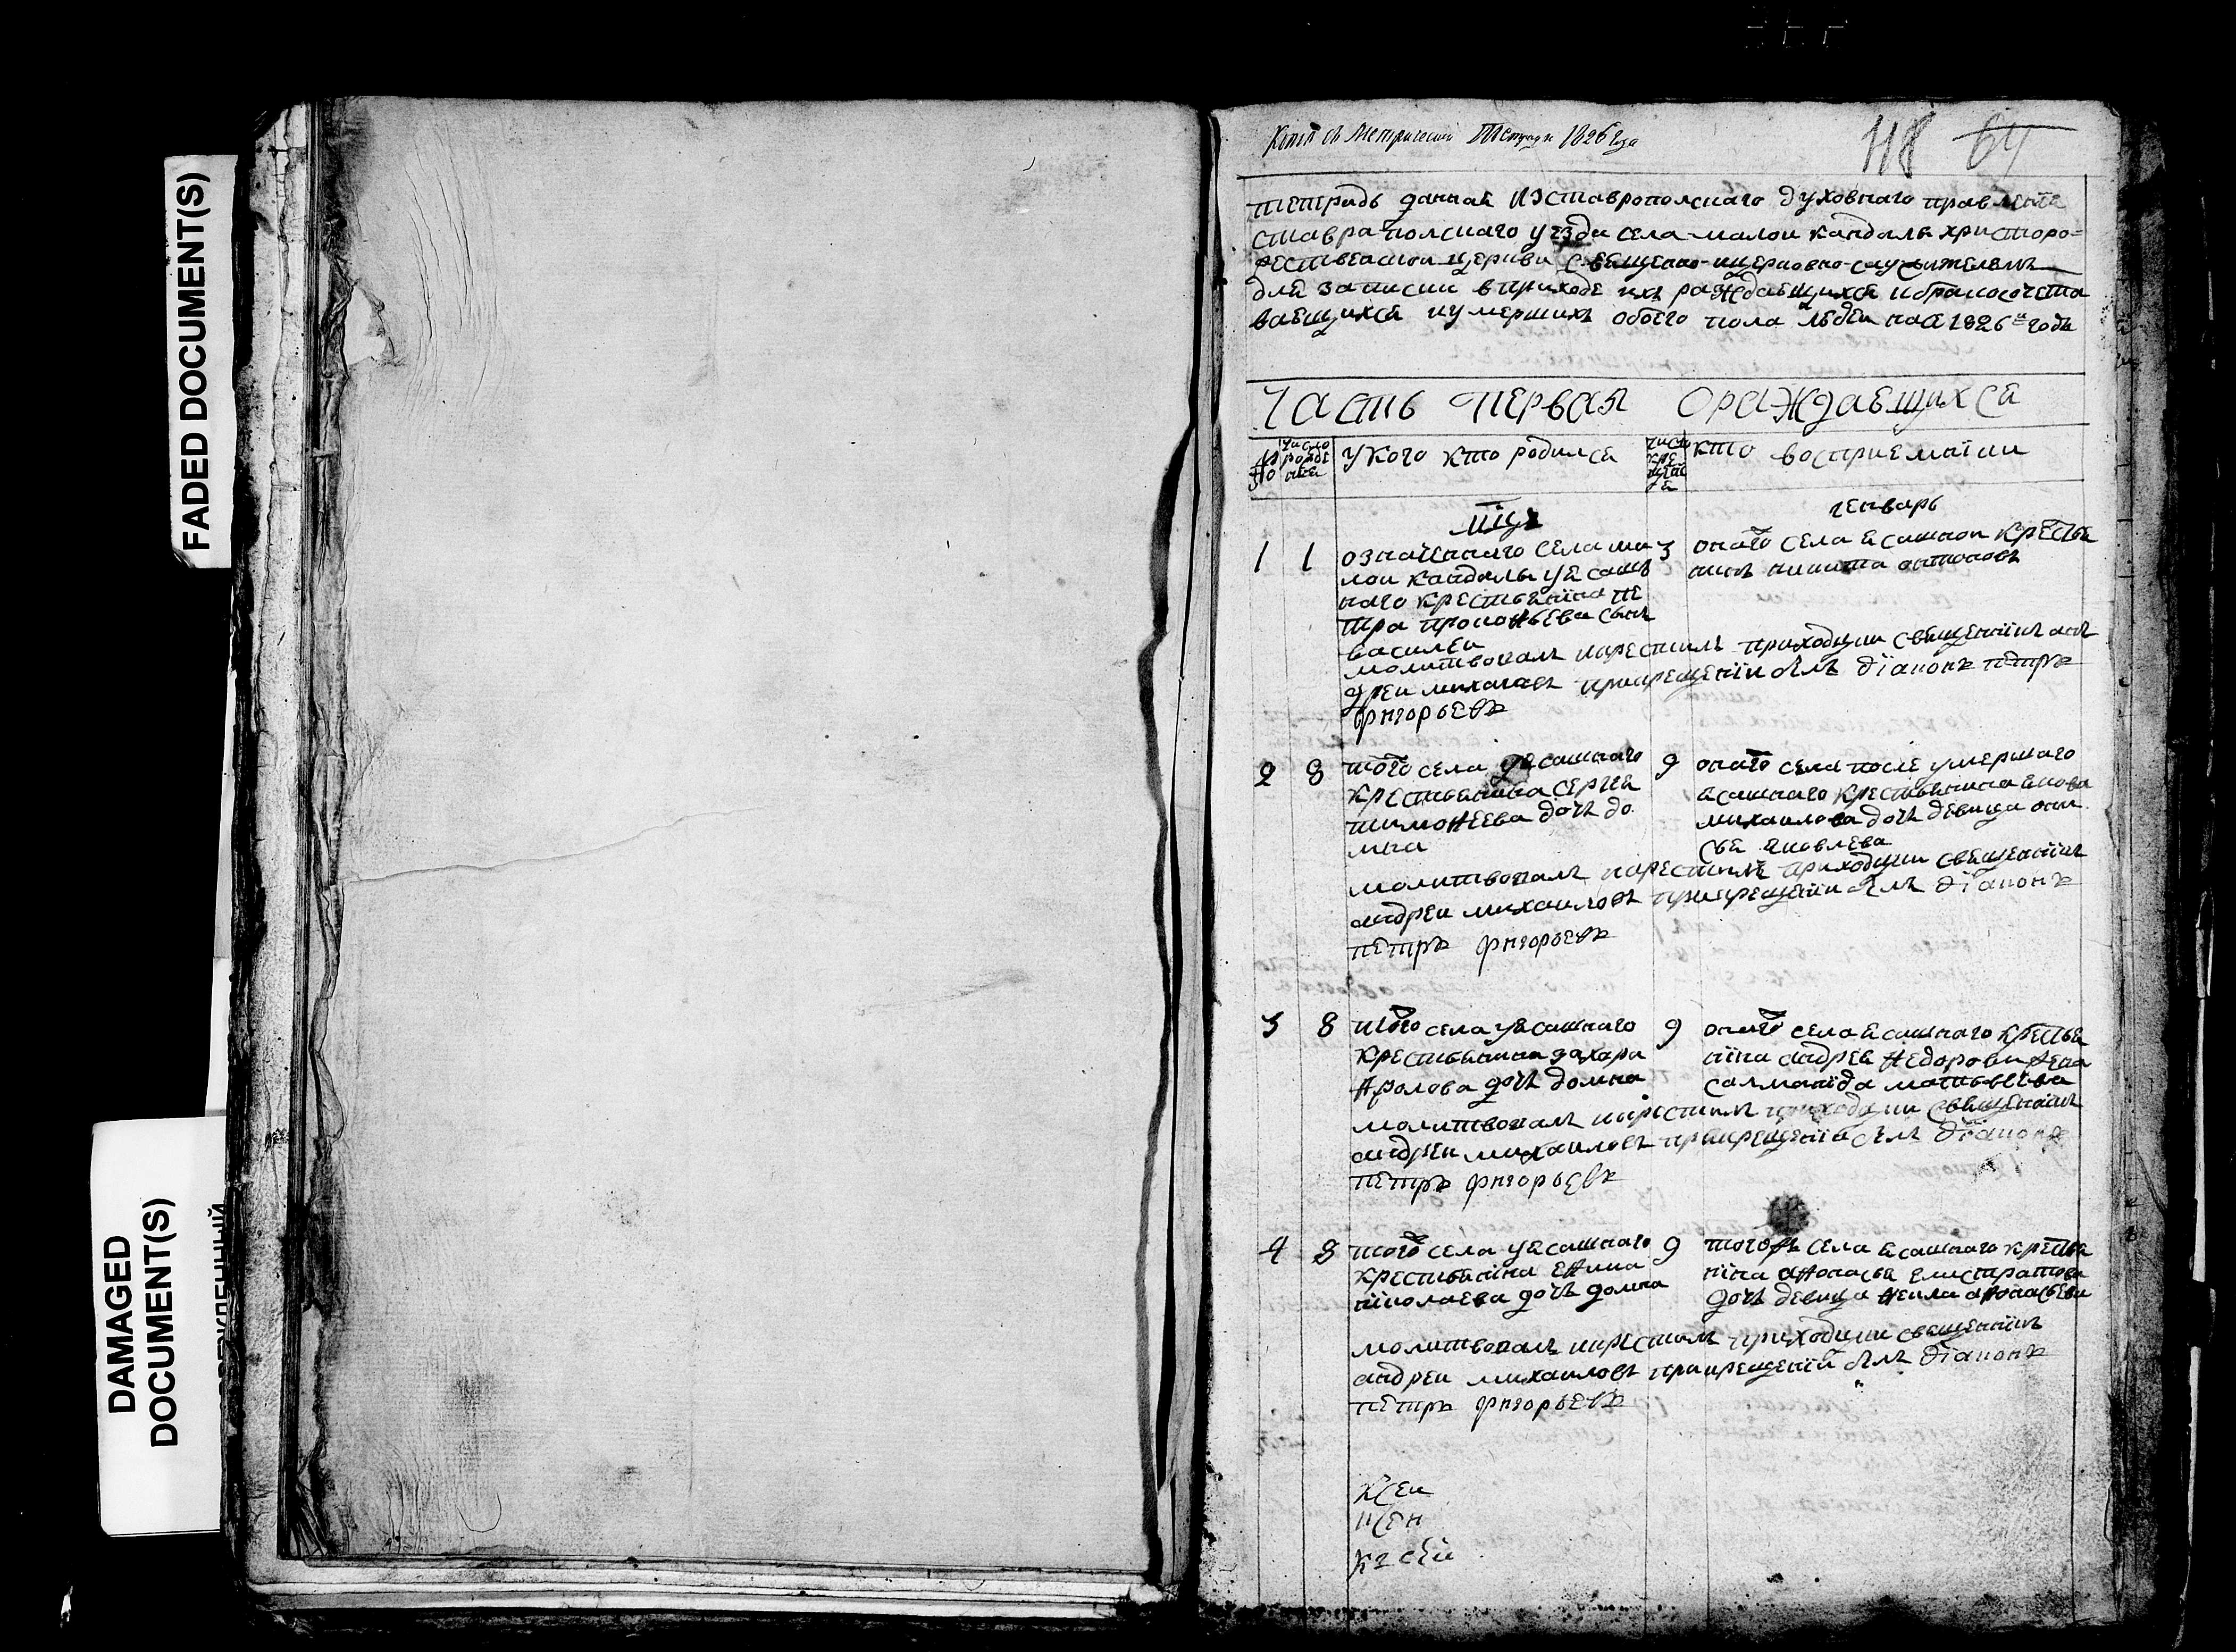 FADED DOCUMENT(S)
DAMAGED
DOCUMENT(S)
Метрической Тетради 1826 года
118 64
тетрадь данная изставропольскаго духовнаго правления
ставрапольскаго уезда села малои кандалы христоро=
жественской церкви священно-церковно-служителямъ
для записки вприходе ихъ раждающихся ибракосочета
вающихся иумершихъ обоего пола людеи на 1826й годъ
Часть первая ораждающихся
число рожде ния
укого кто родился
число кре щени я
кто восприемники
мцъ генварь
1 1 означеннаго села ма
лои кандалы уясаш
наго крестьянина пе
тра прокофьева сынъ
василеи
3 онаго села ясашнои крестья
нинъ никита антоновъ
молитвовалъ икрестилъ приходции священникъ ан
дреи михаиловъ прикрещении былъ диаконъ петръ
григорьевъ
2 8 того села уясашнаго
крестьянина сергея
тимофеева дочь до
мна
9 онаго села после умершаго
ясашнаго крестьянина якова
михаилова дочь девица
яковлева
молитвовалъ икрестилъ приходции священникъ
андреи михаиловъ прикрещении былъ диаконъ
петръ григорьевъ
3 8 того села уясашнаго
крестьянина захара
фролова дочь домна
9 онаго села ясашнаго крестья
нина андрея федорова жена
саломанида матвеева
молитвовалъ икрестилъ приходции священникъ
андреи михаиловъ прикрещении былъ диаконъ
петръ григорьевъ
4 8 того села уясашнаго
крестьянина ефима
николаева дочь домна
9 тогожъ села ясашнаго крестья
нина афонасья елистратова
дочь девица фекла афонасьева
молитвовалъ икрестилъ приходции священникъ
андреи михаиловъ прикрещении былъ диаконъ
петръ григорьевъ